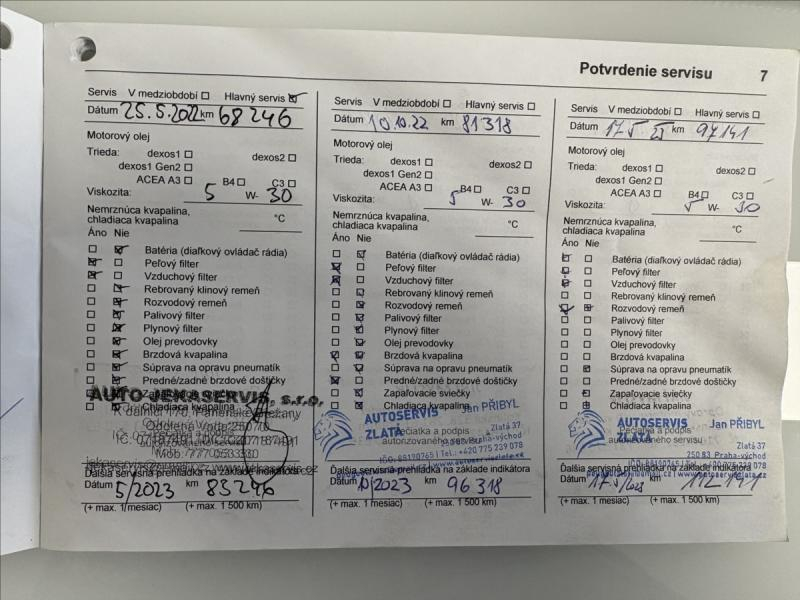 Potvrdenie servisu 7
Servis V medziobdobí Hlavný servis
Dátum 25.5.2022 km 68246
Motorový olej
Trieda: dexos1 dexos2
dexos1 Gen2
ACEA A3 B4 C3
Viskozita: 5 W- 30
Nemrznúca kvapalina,
chladiaca kvapalina °C
Áno Nie
Batéria (diaľkový ovládač rádia)
Peľový filter
Vzduchový filter
Rebrovaný klinový remeň
Rozvodový remeň
Palivový filter
Plynový filter
Olej prevodovky
Brzdová kvapalina
Súprava na opravu pneumatík
Predné/zadné brzdové doštičky
Zapaľovacie sviečky
Chladiaca kvapalina
AUTO JEKASERVIS, s.r.o.
Ďalšia servisná prehliadka na základe indikátora
Dátum 5/2023 km 83246
(+ max. 1/mesiac) (+ max. 1 500 km)
Servis V medziobdobí Hlavný servis
Dátum 10.10.22 km 81318
Motorový olej
Trieda: dexos1 dexos2
dexos1 Gen2
ACEA A3 B4 C3
Viskozita: 5 W- 30
Nemrznúca kvapalina,
chladiaca kvapalina °C
Áno Nie
Batéria (diaľkový ovládač rádia)
Peľový filter
Vzduchový filter
Rebrovaný klinový remeň
Rozvodový remeň
Palivový filter
Plynový filter
Olej prevodovky
Brzdová kvapalina
Súprava na opravu pneumatík
Predné/zadné brzdové doštičky
Zapaľovacie sviečky
Chladiaca kvapalina
AUTOSERVIS Jan PŘIBYL
ZLATÁ
Pečiatka a podpis
autorizovaného servisu
Zlatá 37
250 83 Praha-východ
IČO: 88190765 | Tel.: +420 775 239 078
Ďalšia servisná prehliadka na základe indikátora
Dátum 10/2023 km 96318
(+ max. 1 mesiac) (+ max. 1 500 km)
Servis V medziobdobí Hlavný servis
Dátum km 97141
Motorový olej
Trieda: dexos1 dexos2
dexos1 Gen2
ACEA A3 B4 C3
Viskozita: 5 W- 30
Nemrznúca kvapalina,
chladiaca kvapalina °C
Áno Nie
Batéria (diaľkový ovládač rádia)
Peľový filter
Vzduchový filter
Rebrovaný klinový remeň
Rozvodový remeň
Palivový filter
Plynový filter
Olej prevodovky
Brzdová kvapalina
Súprava na opravu pneumatík
Predné/zadné brzdové doštičky
Zapaľovacie sviečky
Chladiaca kvapalina
AUTOSERVIS Jan PŘIBYL
ZLATÁ
Pečiatka a podpis
autorizovaného servisu
Zlatá 37
250 83 Praha-východ
Ďalšia servisná prehliadka na základe indikátora
Dátum km 112141
(+ max. 1 mesiac) (+ max. 1 500 km)